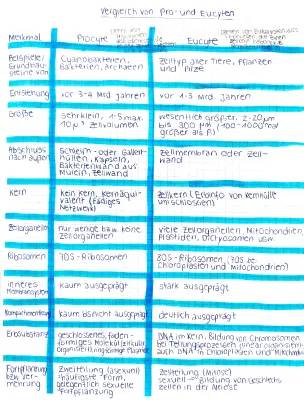 Vergleich von Pro- und Eucyten
Merkmal Procyte Eucyte
Beispiele/ Cyanobakterien, Zelltyp aller Tiere, Pflanzen
Bakterien, Archaeen und Pilze
Entstehung vor 3-4 Mrd. Jahren vor 1-3 Mrd. Jahren
Größe sehr klein, 1-5 max. wesentlich größer, 2-20µm
10 µm Zellvolumen bis 300 µm (100-1000 mal
größer als P.)
Abschluss Schleim- oder Gallert- Zellmembran oder Zell-
nach außen hüllen, Kapseln, wand
Bakterienwand aus
Murein, Zellwand
Kern Kein Kern, Kernäqui- Zellkern (Erbinfo von Kernhülle
valent (fädiges umschlossen)
Netzwerk)
Zellorganellen nur wenige bzw. keine viele Zellorganellen, Mitochondrien,
Zellorganellen Plastiden, Dictyosomen usw.
Ribosomen 70S-Ribosomen 80S-Ribosomen (70S bei
Chloroplasten und Mitochondrien)
inneres kaum ausgeprägt stark ausgeprägt
Membransystem
Kompartimentierung kaum bis nicht ausgeprägt deutlich ausgeprägt
Erbsubstanz geschlossenes, faden- DNA im Kern, Bildung von Chromosomen
förmiges Molekül (zirkulär bei Teilungsprozessen
auch DNA in Chloroplasten und Mitochondrien
Fortpflanzung Zweiteilung (asexuell) Zellteilung (Mitose)
bzw. Ver- häufigste Form, sexuell → Bildung von Geschlechts-
mehrung gelegentlich sexuelle zellen in der Meiose
Fortpflanzung